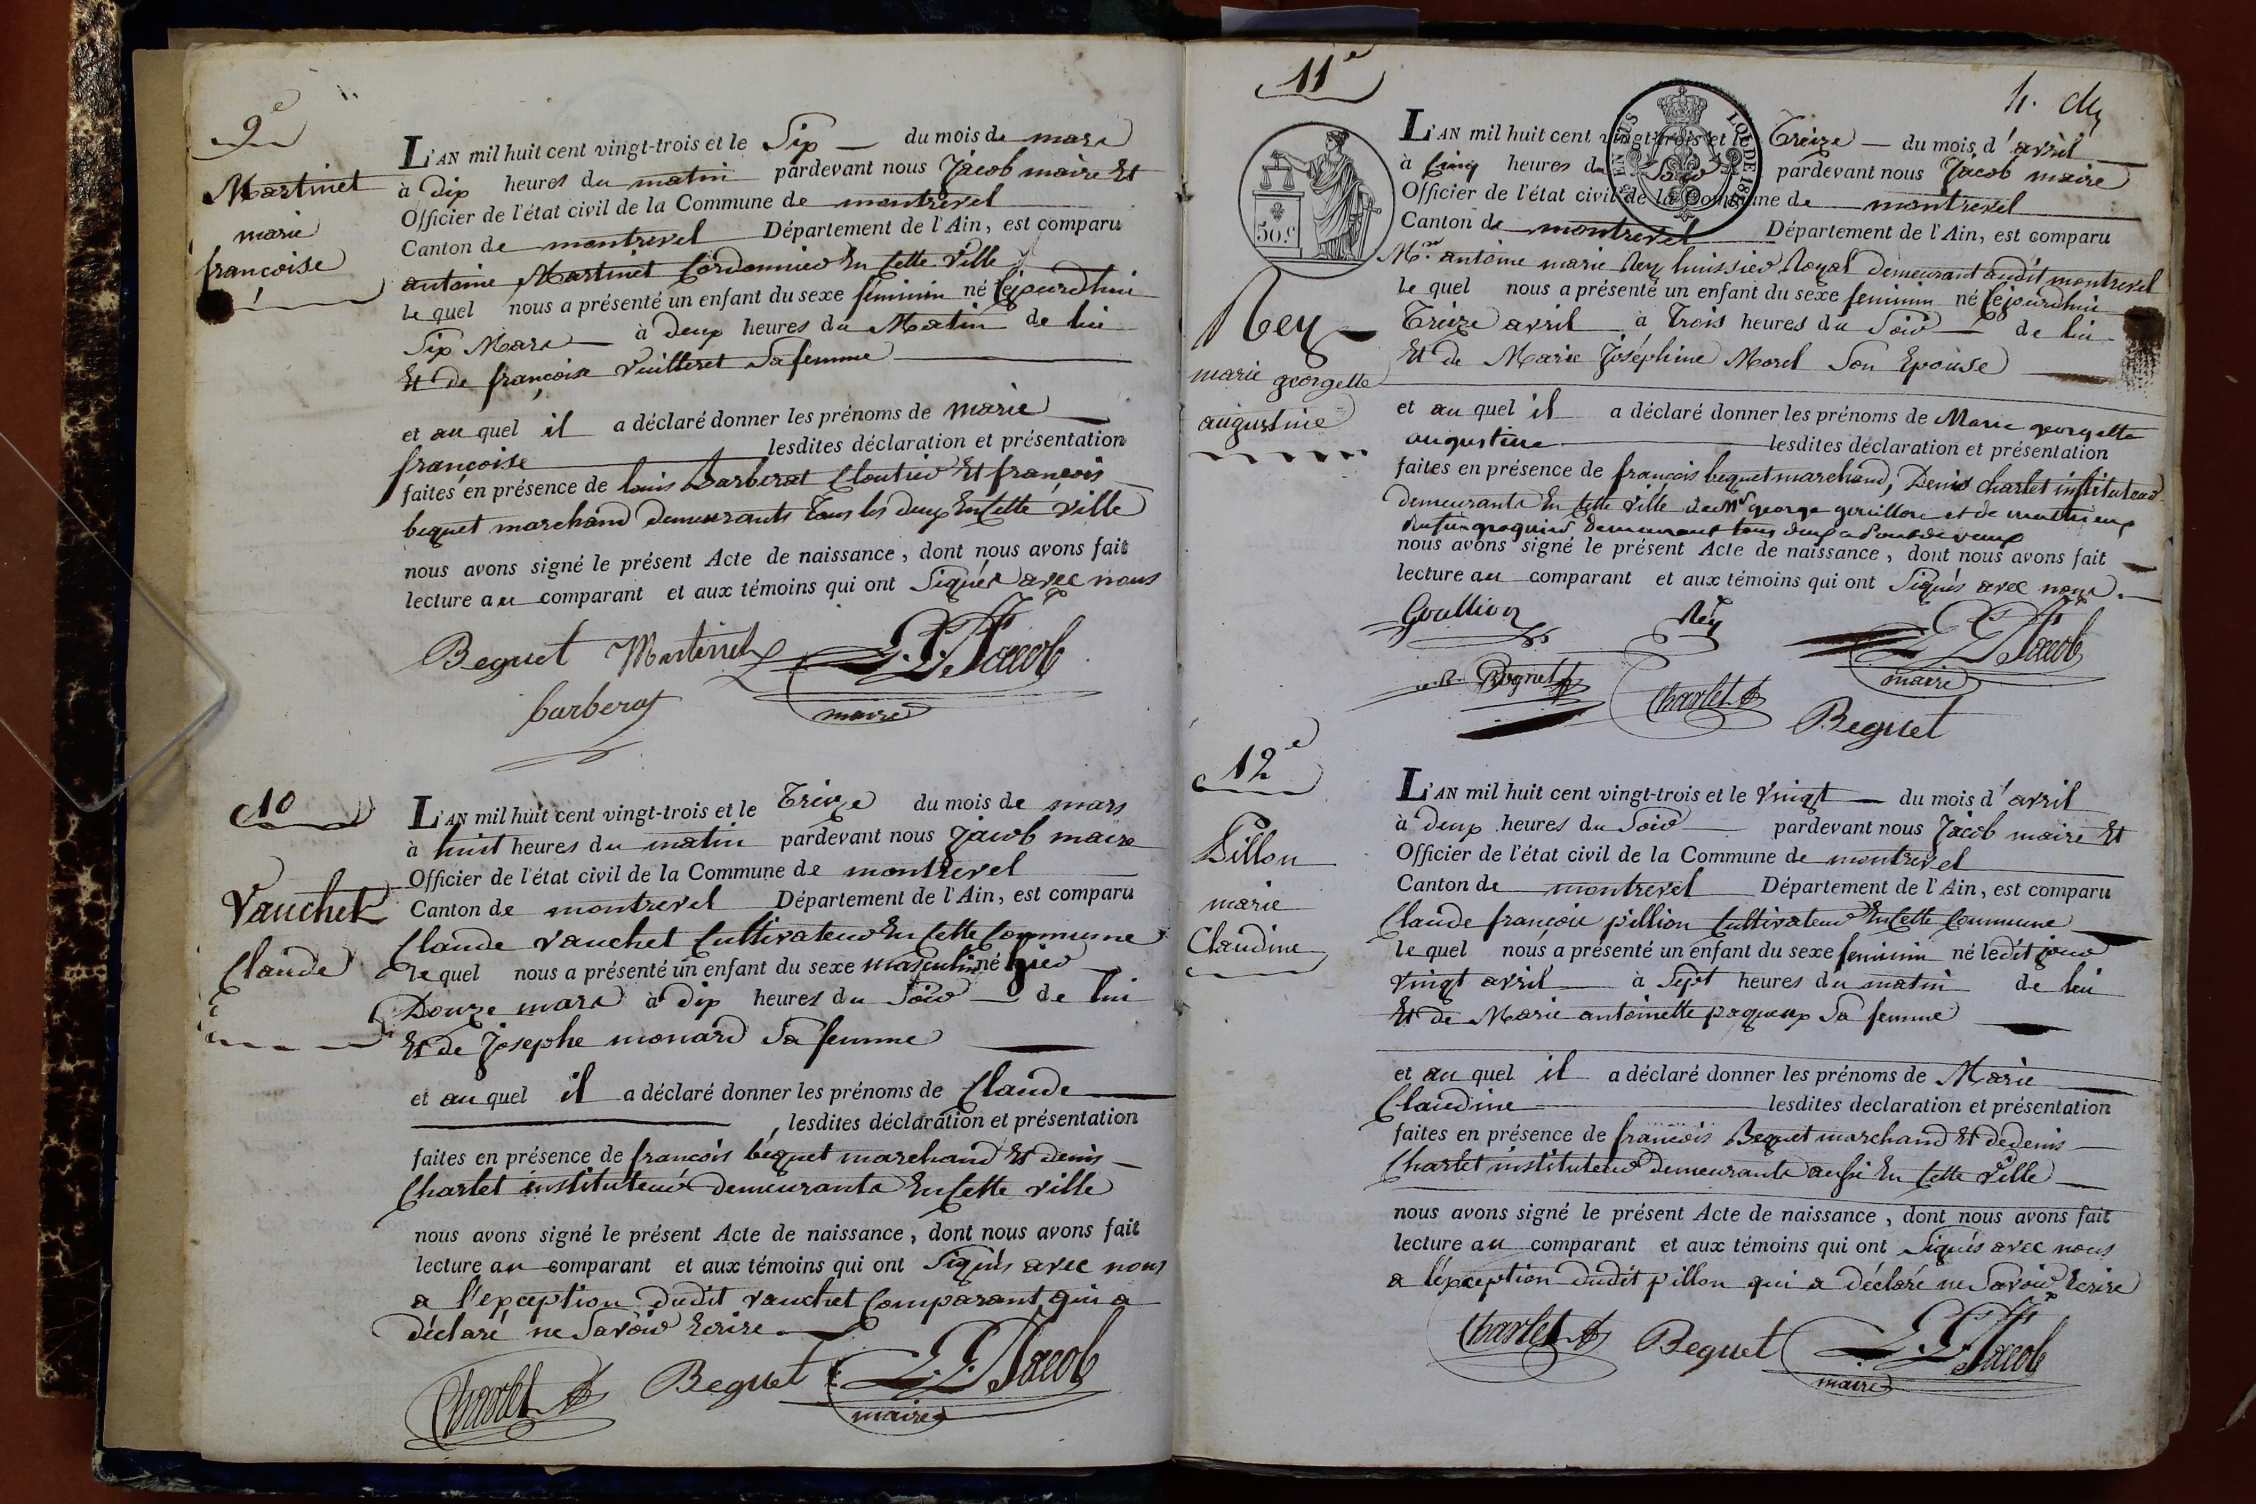 9e
Martinet
marie
francoise
L'AN mil huit cent vingt-trois et le Six du mois de mars
à dix heures du matin pardevant nous Jacob maire Et
Officier de l'état civil de la Commune de montrevel
Canton de montrevel Département de l'Ain, est comparu
antoine Martinet Cordonnier En Cette Ville
le quel nous a présenté un enfant du sexe féminin né Cejourdhui
Six Mars à deux heures du Matin de lui
Et de françoise Vuilleret Sa femme
et au quel il a déclaré donner les prénoms de marie
françoise lesdites déclaration et présentation
faites en présence de louis Barberat Cloutier Et francois
bequet marchand demeurants Tous les deux En Cette Ville
nous avons signé le présent Acte de naissance, dont nous avons fait
lecture au comparant et aux témoins qui ont Signés avec nous
Beguet Martinet Jacob
barberat maire
10
Vauchet
Claude
L'AN mil huit cent vingt-trois et le Treize du mois de mars
à huit heures du matin pardevant nous Jacob maire
Officier de l'état civil de la Commune de montrevel
Canton de montrevel Département de l'Ain, est comparu
Claude Vauchet Cultivateur En Cette Commune
le quel nous a présenté un enfant du sexe masculin né hier
Douze mars à dix heures du Soir de lui
Et de Josephe monard Sa femme
et au quel il a déclaré donner les prénoms de Claude
lesdites déclaration et présentation
faites en présence de francois béquet marchand Et denis
Charlet instituteur demeurants En Cette ville
nous avons signé le présent Acte de naissance, dont nous avons fait
lecture au comparant et aux témoins qui ont Signés avec nous
a l'exception dudit vauchet Comparant qui a
déclaré ne Savoir Ecrire
Charlet Beguet Jacob
maire
11e
30.c
Rey
marie georgette
augustine
L'AN mil huit cent vingt-trois et le Treize du mois d'avril
à Cinq heures du Soir pardevant nous Jacob maire
Officier de l'état civil de la Commune de montrevel
Canton de montrevel Département de l'Ain, est comparu
Mr. antoine marie Rey huissier Royal demeurant audit montrevel
le quel nous a présenté un enfant du sexe feminin né Cejourdhui
Treize avril à Trois heures du Soir de lui
Et de Marie Joséphine Morel Son Epouse
et au quel il a déclaré donner les prénoms de Marie georgette
augustine lesdites déclaration et présentation
faites en présence de françois bequet marchand, Denis Charlet instituteur
demeurants En Cette Ville george et de mathieu
demeurant tous deux a Pont de vaux
nous avons signé le présent Acte de naissance, dont nous avons fait
lecture au comparant et aux témoins qui ont Signés avec nous.
Goullion Rey Jacob
maire
Charlet Beguet
12e
Pillon
marie
Claudine
L'AN mil huit cent vingt-trois et le Vingt du mois d'avril
à deux heures du Soir pardevant nous Jacob maire Et
Officier de l'état civil de la Commune de montrevel
Canton de montrevel Département de l'Ain, est comparu
Claude françois pillion Cultivateur En Cette Commune
le quel nous a présenté un enfant du sexe feminin né ledit jour
vingt avril à Sept heures du matin de lui
Et de Marie antoinette paqueux Sa femme
et au quel il a déclaré donner les prénoms de Marie
Claudine lesdites declaration et présentation
faites en présence de francois Bequet marchand Et de denis
Charlet instituteur demeurants aussi En Cette Ville
nous avons signé le présent Acte de naissance, dont nous avons fait
lecture au comparant et aux témoins qui ont Signés avec nous
a l'exception dudit pillon qui a déclaré ne Savoir Ecrire
Charlet Beguet Jacob
maire